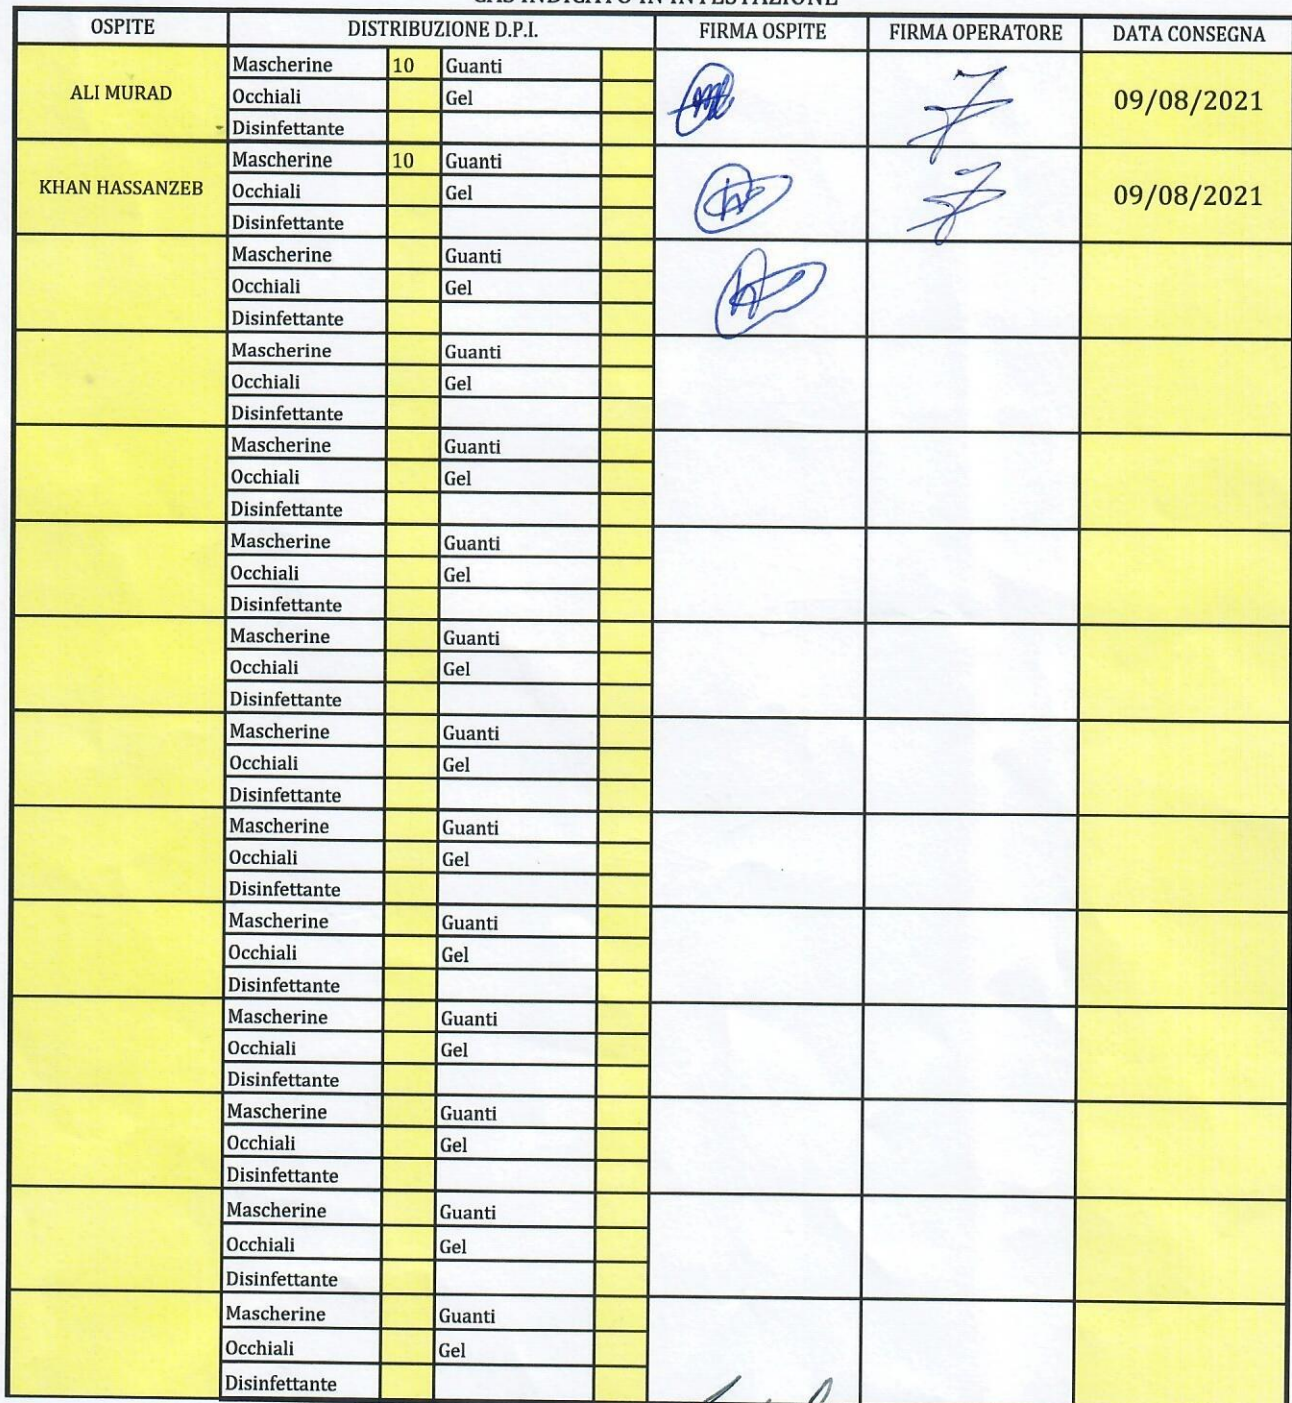 CAS INDICATO IN INTESTAZIONE
OSPITE DISTRIBUZIONE D.P.I. FIRMA OSPITE FIRMA OPERATORE DATA CONSEGNA
ALI MURAD
Mascherine 10 Guanti
Occhiali Gel
Disinfettante
09/08/2021
KHAN HASSANZEB
Mascherine 10 Guanti
Occhiali Gel
Disinfettante
09/08/2021
Mascherine Guanti
Occhiali Gel
Disinfettante
Mascherine Guanti
Occhiali Gel
Disinfettante
Mascherine Guanti
Occhiali Gel
Disinfettante
Mascherine Guanti
Occhiali Gel
Disinfettante
Mascherine Guanti
Occhiali Gel
Disinfettante
Mascherine Guanti
Occhiali Gel
Disinfettante
Mascherine Guanti
Occhiali Gel
Disinfettante
Mascherine Guanti
Occhiali Gel
Disinfettante
Mascherine Guanti
Occhiali Gel
Disinfettante
Mascherine Guanti
Occhiali Gel
Disinfettante
Mascherine Guanti
Occhiali Gel
Disinfettante
Mascherine Guanti
Occhiali Gel
Disinfettante